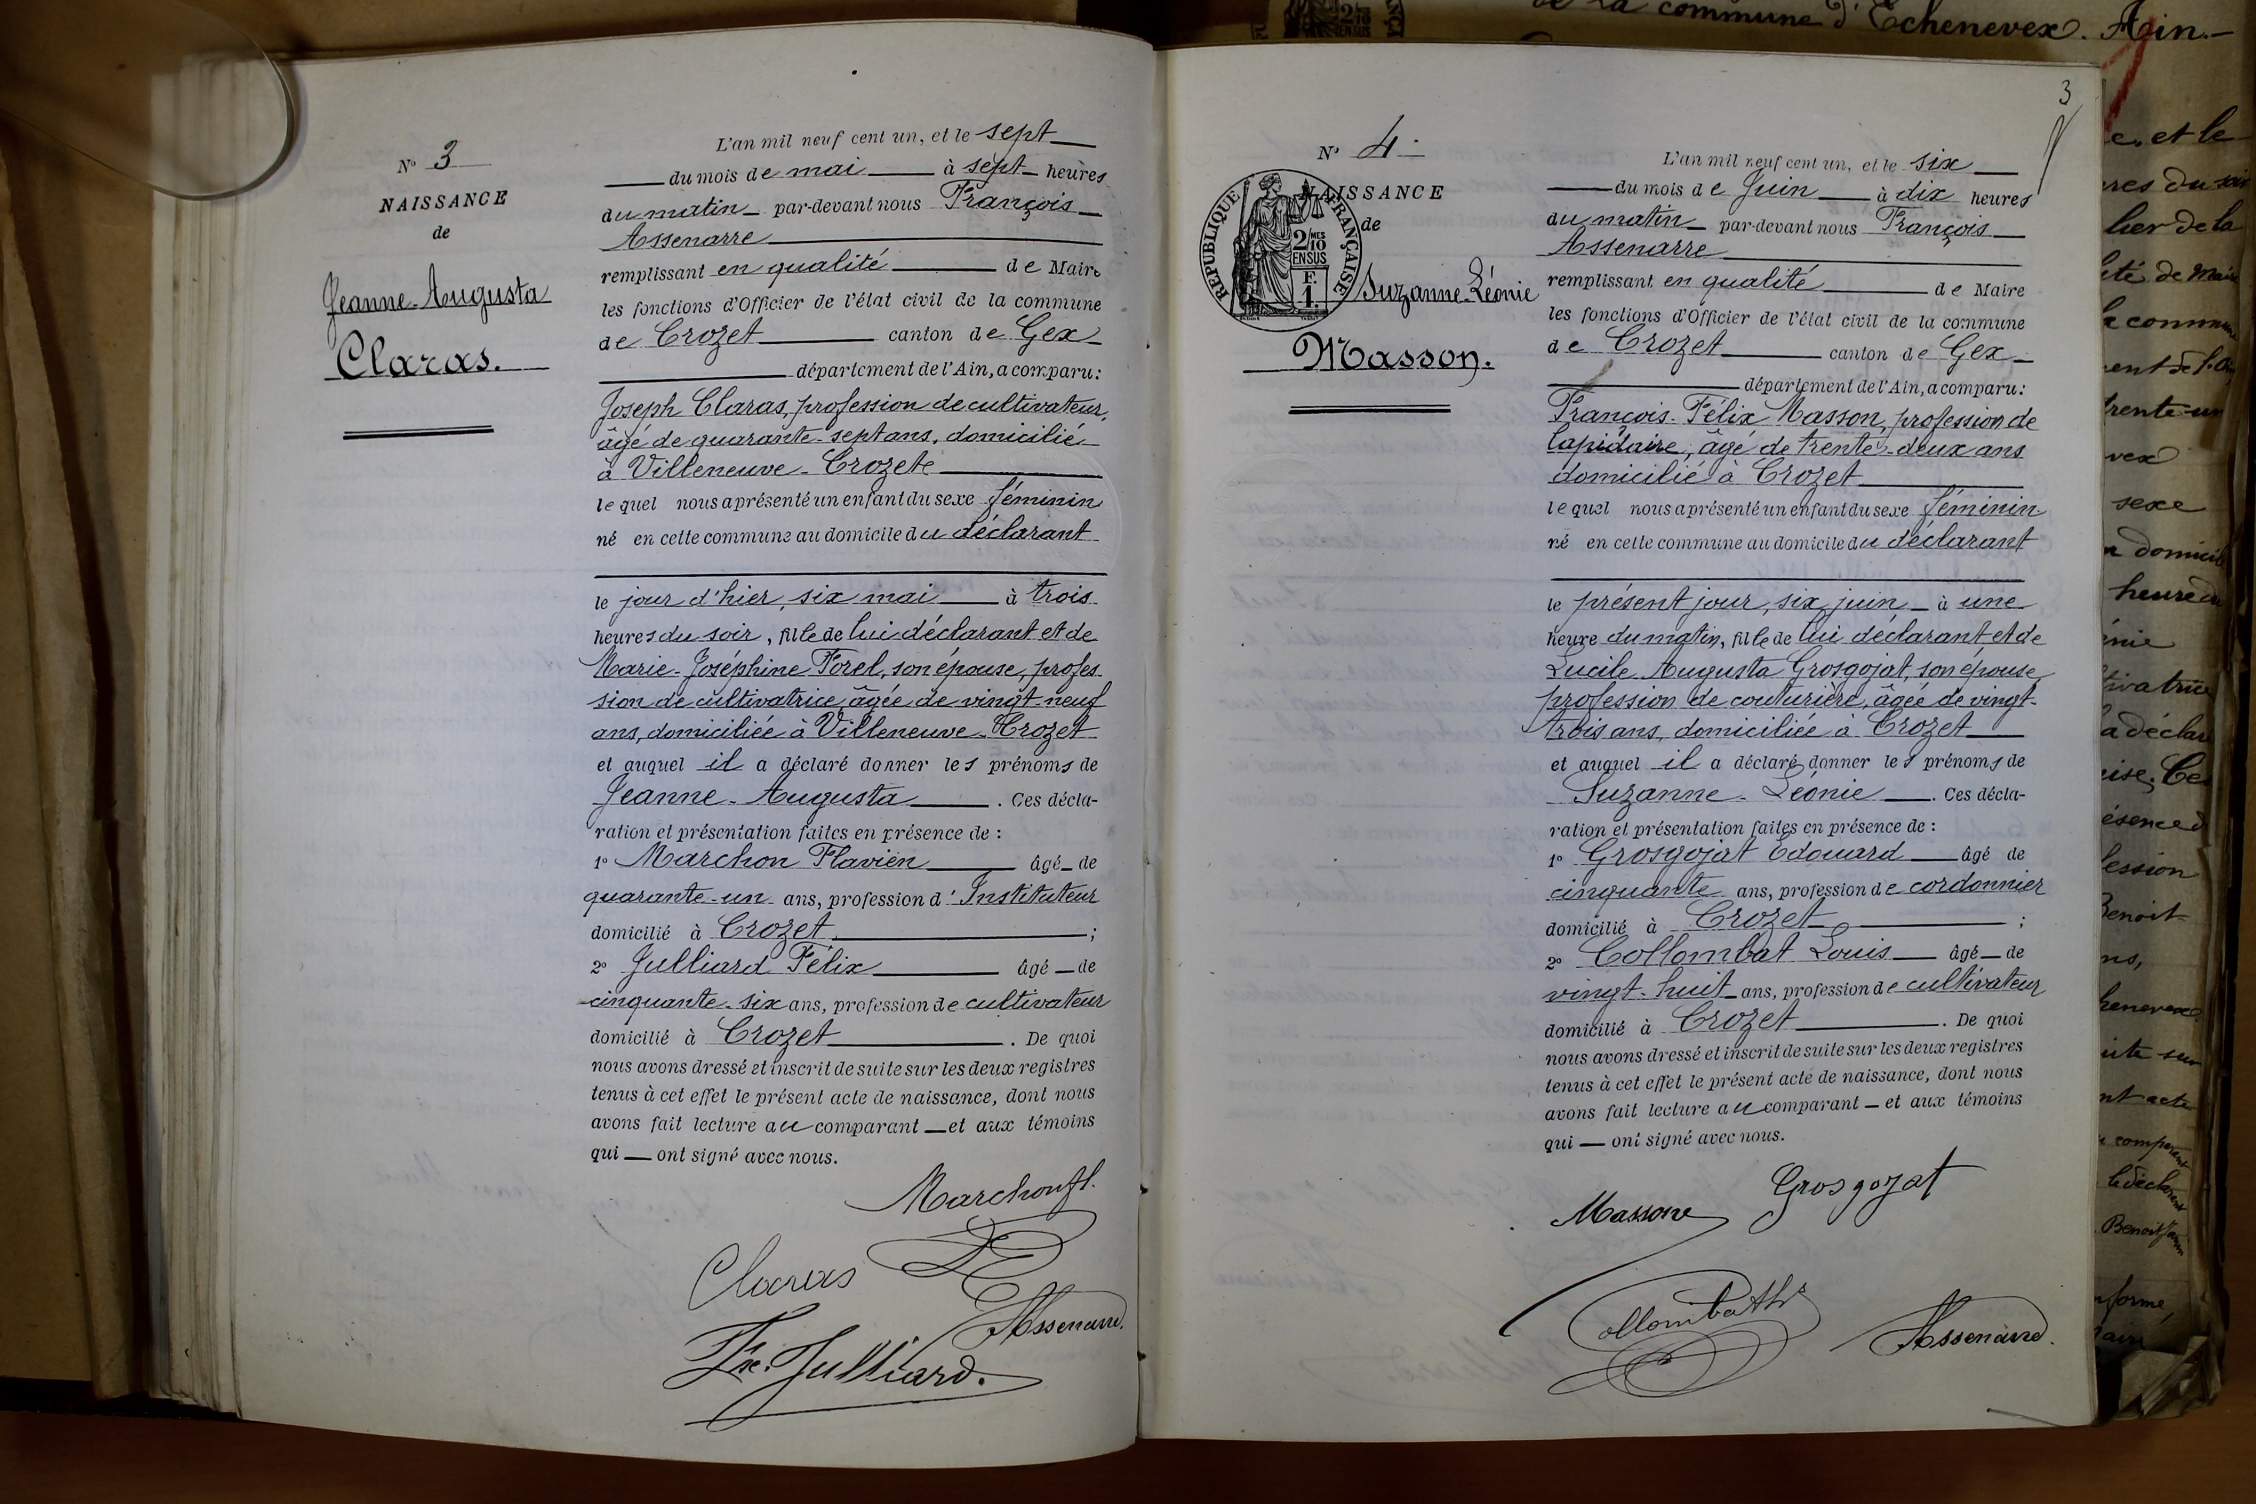 N° 3
NAISSANCE
de
Jeanne-Augusta
Claras.
L'an mil neuf cent un, et le sept
du mois de mai à sept heures
du matin par-devant nous François
Assenarre
remplissant en qualité de Maire
les fonctions d'Officier de l'état civil de la commune
de Crozet canton de Gex
département de l'Ain, a comparu:
Joseph Claras, profession de cultivateur,
âgé de quarante-sept ans, domicilié
à Villeneuve-Crozet
lequel nous a présenté un enfant du sexe féminin
né en cette commune au domicile du déclarant
le jour d'hier, six mai à trois
heures du soir, fille de lui déclarant et de
Marie-Joséphine Forel, son épouse, profes-
sion de cultivatrice, âgée de vingt-neuf
ans, domiciliée à Villeneuve-Crozet
et auquel il a déclaré donner les prénoms de
Jeanne-Augusta. Ces décla-
ration et présentation faites en présence de:
1° Marchon Flavien âgé de
quarante-un ans, profession d'Instituteur
domicilié à Crozet;
2° Julliard Félix âgé de
cinquante-six ans, profession de cultivateur
domicilié à Crozet. De quoi
nous avons dressé et inscrit de suite sur les deux registres
tenus à cet effet le présent acte de naissance, dont nous
avons fait lecture au comparant et aux témoins
qui ont signé avec nous.
Marchon fl.
Claras
Assenarre.
Fx. Julliard.
de la commune d'Echenevex. Ain.-
3
N° 4.
NAISSANCE
de
RÉPUBLIQUE FRANÇAISE
2/10
MES
EN SUS
F.
1.
Suzanne-Léonie
Masson.
L'an mil neuf cent un, et le six
du mois de Juin à dix heures
du matin par-devant nous François
Assenarre
remplissant en qualité de Maire
les fonctions d'Officier de l'état civil de la commune
de Crozet canton de Gex
département de l'Ain, a comparu:
François-Félix Masson, profession de
lapidaire, âgé de trente-deux ans
domicilié à Crozet
lequel nous a présenté un enfant du sexe féminin
né en cette commune au domicile du déclarant
le présent jour, six juin à une
heure du matin, fille de lui déclarant et de
Lucile Augusta Grosgojat, son épouse,
profession de couturière, âgée de vingt-
trois ans, domiciliée à Crozet
et auquel il a déclaré donner les prénoms de
Suzanne-Léonie. Ces décla-
ration et présentation faites en présence de:
1° Grosgojat Edouard âgé de
cinquante ans, profession de cordonnier
domicilié à Crozet;
2° Collombat Louis âgé de
vingt-huit ans, profession de cultivateur
domicilié à Crozet. De quoi
nous avons dressé et inscrit de suite sur les deux registres
tenus à cet effet le présent acte de naissance, dont nous
avons fait lecture au comparant et aux témoins
qui ont signé avec nous.
Masson
Grosgojat
Collombat Ls
Assenarre.
et le
de la
de Maire
commune
sexe
domicile
heure du
Benoit
acte
comparant
Benoit